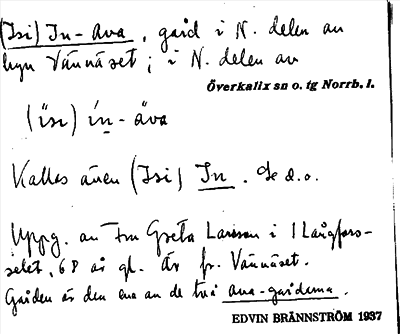 (Isi) In-Ava, gård i N. delen av
byn Vännäset; i N. delen av
Överkalix sn o. tg Norrb. l.
(isi) in-äva
Kallas även (Isi) In. Se d.o.
Uppg. av Fru Greta Larsson i Långfors-
selet, 68 år gl. Är fr. Vännäset.
Gården är den ena av de två ava-gårdarna.
EDVIN BRÄNNSTRÖM 1937